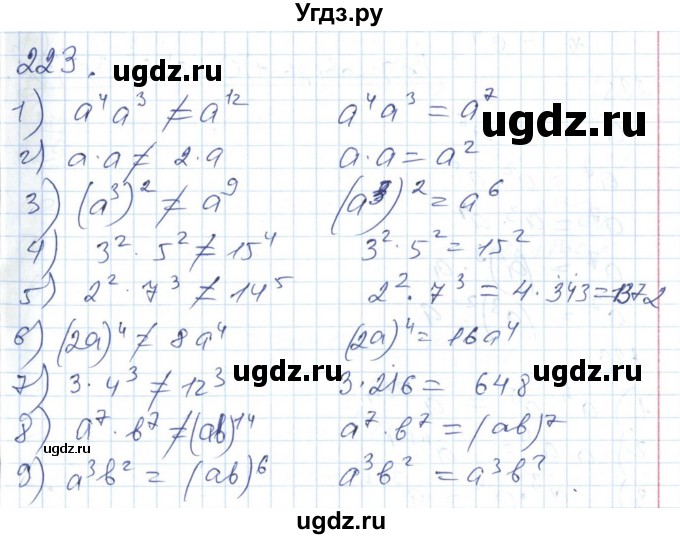 Угдз.ру
223.
ugdz.ru
ugdz.ru
1) a⁴a³ ≠ a¹² a⁴a³ = a⁷
ugdz.ru
2) a·a ≠ 2·a a·a = a²
3) (a³)² ≠ a⁹ (a³)² = a⁶
ugdz.ru
4) 3²·5² ≠ 15⁴ 3²·5² = 15²
5) 2²·7³ ≠ 14⁵ 2²·7³ = 4·343 = 1372
6) (2a)⁴ ≠ 8a⁴ (2a)⁴ = 16a⁴
ugdz.ru
ugdz.ru
7) 3·4³ ≠ 12³ 3·216 = 648
8) a⁷·b⁷ ≠ (ab)¹⁴ a⁷·b⁷ = (ab)⁷
ugdz.ru
ugdz.ru
9) a³b² = (ab)⁶ a³b² = a³b²
ugdz.ru